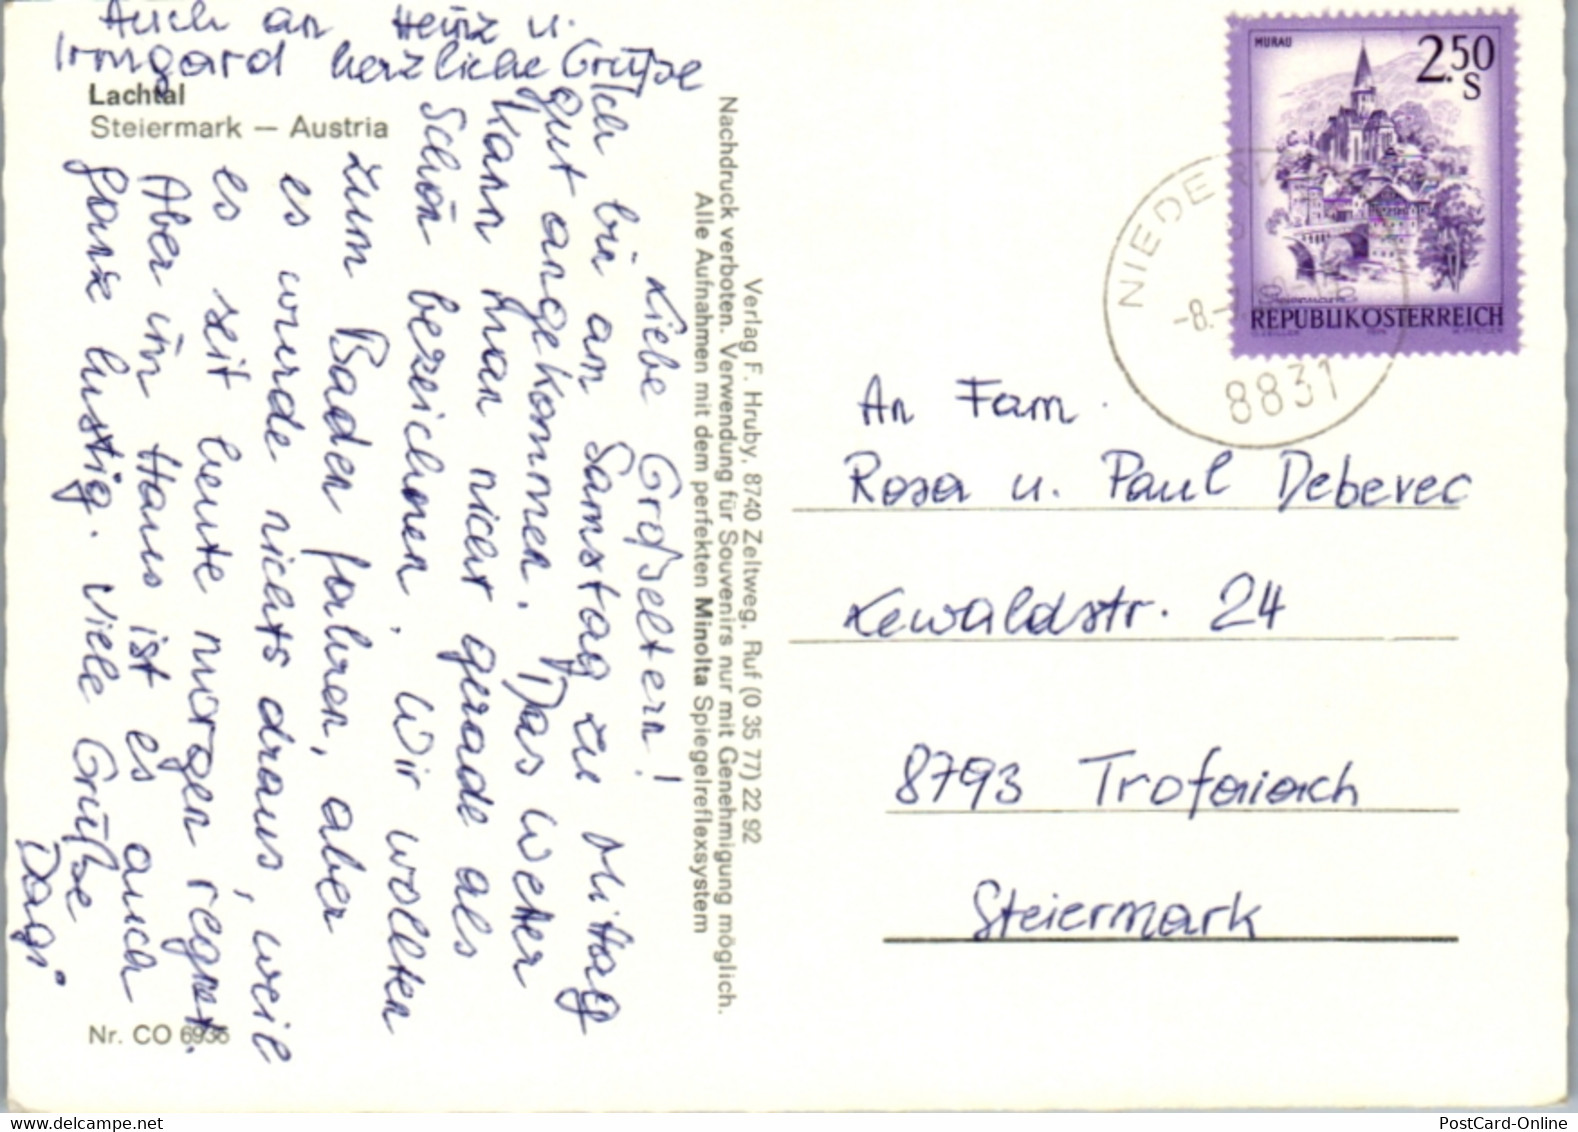 Auch an Heinz u.
Irmgard herzliche Grüße
Lachtal
Steiermark — Austria
Liebe Großeltern!
Ich bin am Samstag zu Mittag
gut angekommen. Das Wetter
kann man nicht gerade als
Schön bezeichnen. Wir wollten
zum Baden fahren, aber
es wurde nichts draus, weil
es seit heute morgen regnet.
Aber im Haus ist es auch
ganz lustig. Viele Grüße
Dagi
Nr. CO 6935
Verlag F. Hruby, 8740 Zeltweg, Ruf (0 35 77) 22 92
Nachdruck verboten. Verwendung für Souvenirs nur mit Genehmigung möglich.
Alle Aufnahmen mit dem perfekten Minolta Spiegelreflexsystem
MURAU
2.50
S
Steiermark
REPUBLIK ÖSTERREICH
8831
An Fam.
Rosa u. Paul Debevec
Kewaldstr. 24
8793 Trofaiach
Steiermark
PostCard-Online